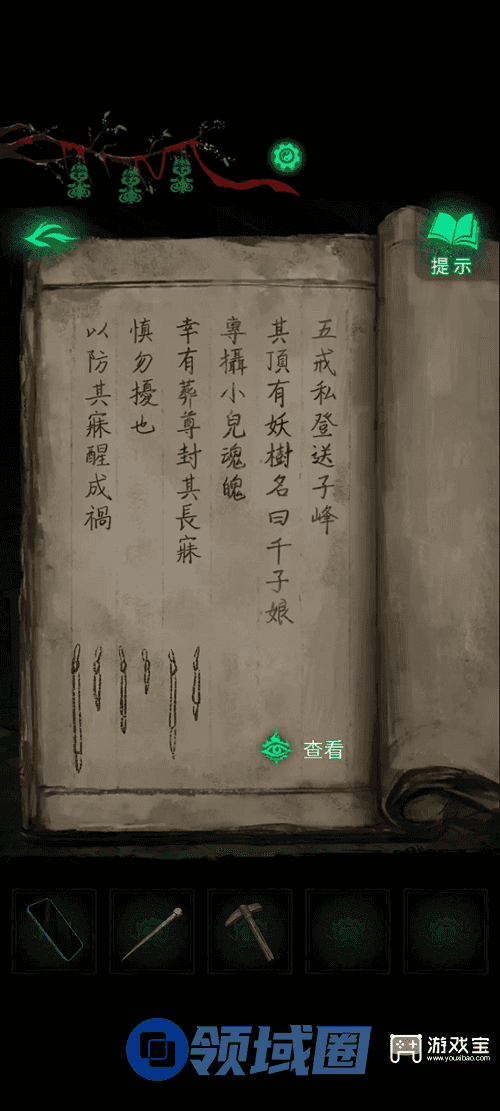 提示
五戒私登送子峰
其頂有妖樹名曰千子娘
專攝小兒魂魄
幸有葬尊封其長寐
慎勿擾也
以防其寐醒成禍
查看
领域圈
游戏宝
www.youxibao.com